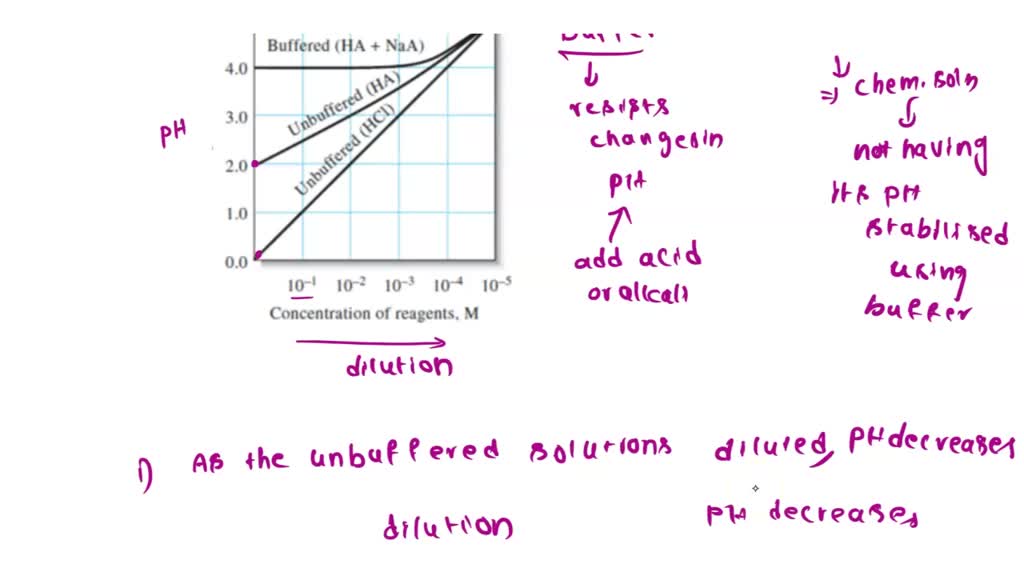 Buffer
Buffered (HA + NaA)
4.0
Unbuffered (HA)
3.0
Unbuffered (HCl)
2.0
1.0
0.0
PH
10⁻¹ 10⁻² 10⁻³ 10⁻⁴ 10⁻⁵
Concentration of reagents, M
dilution
resists
changes in
PH
add acid
or alkali
⇒ chem. soln
not having
its PH
stabilised
using
buffer
1) As the unbuffered solutions diluted, PH decreases
dilution PH decreases